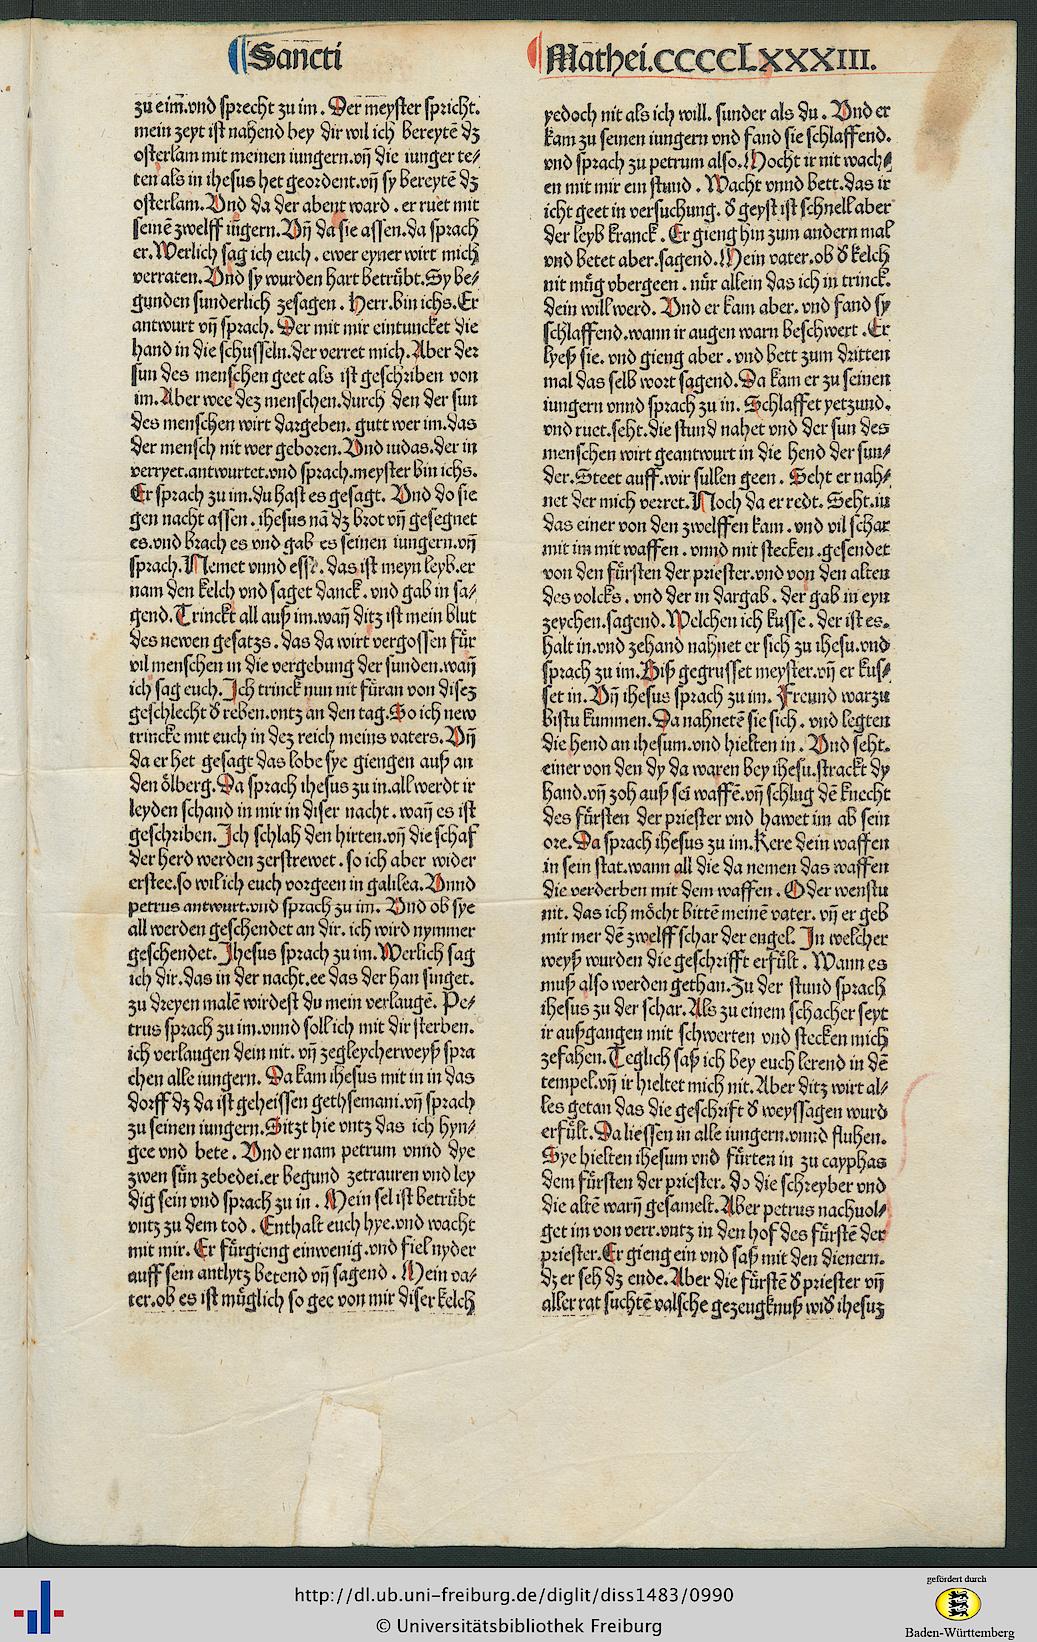 Sancti
Mathei.CCCCLXXXIII.
zu eim̃.vnd sprecht zu im. Der meyster spricht.
mein zeyt ist nahend bey dir wil ich bereytẽ dz
osterlam mit meinen iungern.vñ die iunger te⸗
ten als in ihesus het geordent.vñ sy bereytẽ dz
osterlam.Vnd da der abent ward. er ruet mit
seinẽ zwelff iũgern.Vñ da sie assen.da sprach
er.Werlich sag ich euch. ewer eyner wirt mich
verraten.Vnd sy wurden hart betrůbt.Sy be⸗
gunden sunderlich zesagen. Herr.bin ichs.Er
antwurt vñ sprach. Der mit mir eintuncket die
hand in die schusseln.der verret mich.Aber der
sun des menschen geet als ist geschriben von
im.Aber wee dez menschen.durch den der sun
des menschen wirt dargeben. gutt wer im.das
der mensch nit wer geboren.Vnd iudas.der in
verryet.antwurtet.vnd sprach.meyster bin ichs.
Er sprach zu im.du hast es gesagt. Vnd do sie
gen nacht assen. ihesus nã dz brot vñ gesegnet
es.vnd brach es vnd gab es seinen iungern.vñ
sprach.Nemet vnnd esse. das ist meyn leyb.er
nam den kelch vnd saget danck. vnd gab in sa⸗
gend.Trinckt all auß im.wañ ditz ist mein blut
des newen gesatzs. das da wirt vergossen fůr
vil menschen in die vergebung der sunden.wañ
ich sag euch.Ich trinck nun nit fůran von disez
geschlecht ð reben.vntz an den tag.So ich new
trincke mit euch in dez reich meins vaters.Vñ
da er het gesagt das lobe sye giengen auß an
den ölberg.Da sprach ihesus zu in.all werdt ir
leyden schand in mir in diser nacht. wañ es ist
geschriben.Ich schlah den hirten.vñ die schaf
der herd werden zerstrewet. so ich aber wider
erstee.so wil ich euch vorgeen in galilea.Vnnd
petrus antwurt.vnd sprach zu im. Vnd ob sye
all werden geschendet an dir. ich wird nymmer
geschendet.Ihesus sprach zu im.Werlich sag
ich dir.das in der nacht.ee das der han singet.
zu dreyen malẽ wirdest du mein verlaugẽ. Pe⸗
trus sprach zu im.vnnd soll ich mit dir sterben.
ich verlaugen dein nit. vñ zegleycherweyß spra
chen alle iungern. Da kam ihesus mit in in das
dorff dz da ist geheissen gethsemani.vñ sprach
zu seinen iungern.Sitzt hie vntz das ich hyn⸗
gee vnd bete. Vnd er nam petrum vnnd dye
zwen sůn zebedei.er begund zetrauren vnd ley
dig sein vnd sprach zu in. Mein sel ist betrůbt
vntz zu dem tod. Enthalt euch hye.vnd wacht
mit mir. Er fůrgieng einwenig.vnd fiel nyder
auff sein antlytz betend vñ sagend. Mein va⸗
ter.ob es ist můglich so gee von mir diser kelch
yedoch nit als ich will. sunder als du. Vnd er
kam zu seinen iungern vnd fand sie schlaffend.
vnd sprach zu petrum also.Mocht ir nit wach⸗
en mit mir ein stund. Wacht vnnd bett.das ir
icht geet in versuchung. ð geyst ist schnell aber
der leyb kranck. Er gieng hin zum andern mal
vnd betet aber.sagend.Mein vater.ob ð kelch
nit můg vbergeen. nůr allein das ich in trinck.
dein will werd. Vnd er kam aber. vnd fand sy
schlaffend.wann ir augen warn beschwert. Er
lyeß sie. vnd gieng aber. vnd bett zum dritten
mal das selb wort sagend.Da kam er zu seinen
iungern vnnd sprach zu in. Schlaffet yetzund.
vnd ruet.seht.die stund nahet vnd der sun des
menschen wirt geantwurt in die hend der sun⸗
der.Steet auff.wir sullen geen. Seht er nah⸗
net der mich verret.Noch da er redt. Seht.iu
das einer von den zwelffen kam. vnd vil schar
mit im mit waffen. vnnd mit stecken.gesendet
von den fůrsten der priester.vnd von den alten
des volcks. vnd der in dargab. der gab in eyn
zeychen.sagend.Welchen ich kusse. der ist es.
halt in.vnd zehand nahnet er sich zu ihesu.vnd
sprach zu im.Biß gegrusset meyster.vñ er kus⸗
set in. Vñ ihesus sprach zu im. Freund warzu
bistu kummen.Da nahnetẽ sie sich. vnd legten
die hend an ihesum.vnd hielten in. Vnd seht.
einer von den dy da waren bey ihesu.strackt dy
hand.vñ zoh auß sei waffẽ.vñ schlug dẽ knecht
des fůrsten der priester vnd hawet im ab sein
ore.Da sprach ihesus zu im.Kere dein waffen
in sein stat.wann all die da nemen das waffen
die verderben mit dem waffen. Oder wenstu
nit. das ich möcht bittẽ meinẽ vater. vñ er geb
mir mer dẽ zwelff schar der engel. In welcher
weyß wurden die geschrifft erfůlt. Wann es
muß also werden gethan.Zu der stund sprach
ihesus zu der schar.Als zu einem schacher seyt
ir außgangen mit schwerten vnd stecken mich
zefahen.Teglich saß ich bey euch lerend in dẽ
tempel.vñ ir hieltet mich nit.Aber ditz wirt al⸗
les getan das die geschrift ð weyssagen wurd
erfůlt.Da liessen in alle iungern.vnnd fluhen.
Sye hielten ihesum vnd fůrten in zu cayphas
dem fůrsten der priester. do die schreyber vnd
die altẽ warñ gesamelt.Aber petrus nachuol⸗
get im von verr.vntz in den hof des fůrstẽ der
priester.Er gieng ein vnd saß mit den dienern.
dz er seh dz ende.Aber die fůrstẽ ð priester vñ
aller rat suchtẽ valsche gezeugknuß wið ihesuz
http://dl.ub.uni-freiburg.de/diglit/diss1483/0990
© Universitätsbibliothek Freiburg
gefördert durch
Baden-Württemberg